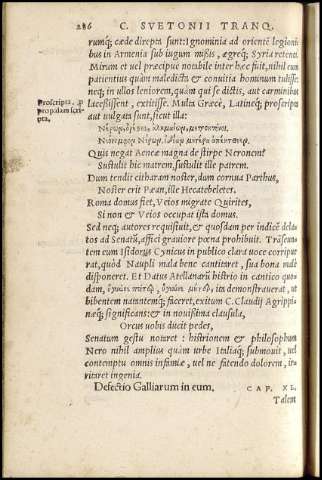 286 C. SVETONII TRANQ.
rumq́; cæde direpta sunt: Ignominia ad orientẽ legioni
bus in Armenia sub iugum missis, ægreq́; Syria retenta.
Mirum et uel præcipuè notabile inter hæc fuit, nihil eum
patientius quàm maledicta & conuitia hominum tulisse:
neq́; in ullos leniorem, quàm qui se dictis, aut carminibus
lacessissent, extitisse. Multa Græcè, Latineq́; proscripta
Proscripta, p
propalàm scri
pta,
aut uulgata sunt, sicut illa:
Νέρων, ὀρέστης, ἀλκμαίων, μητροκτόνοι.
Νεόνυμφον Νέρων, ἰδίαν μητέρα ἀπέκτεινεν.
Quis neget Aeneæ magna de stirpe Neronem?
Sustulit hic matrem, sustulit ille patrem.
Dum tendit citharam noster, dum cornua Parthus,
Noster erit Pæan, ille Hecatebeletes.
Roma domus fiet, Veios migrate Quirites,
Si non & Veios occupat ista domus.
Sed neq; autores requisiuit, & quosdam per indicẽ dela-
tos ad Senatũ, affici grauiore pœna prohibuit. Trãseun-
tem eum Isidorus Cynicus in publico clara uoce corripue
rat, quòd Naupli mala bene cantitaret, sua bona malè
disponeret. Et Datus Atellanarũ histrio in cantico quo-
dam, ὑγίαινε πάτερ, ὑγίαινε μῆτερ, ita demonstrauerat, ut
bibentem natantemq́; faceret, exitum C. Claudij Agrippi-
næq́; significans: & in nouissima clausula,
Orcus uobis ducit pedes,
Senatum gestu notaret: histrionem & philosophum
Nero nihil amplius quàm urbe Italiaq́; submouit, uel
contemptu omnis infamiæ, uel ne fatendo dolorem, ir-
ritaret ingenia.
Defectio Galliarum in eum. CAP. XL.
Talem